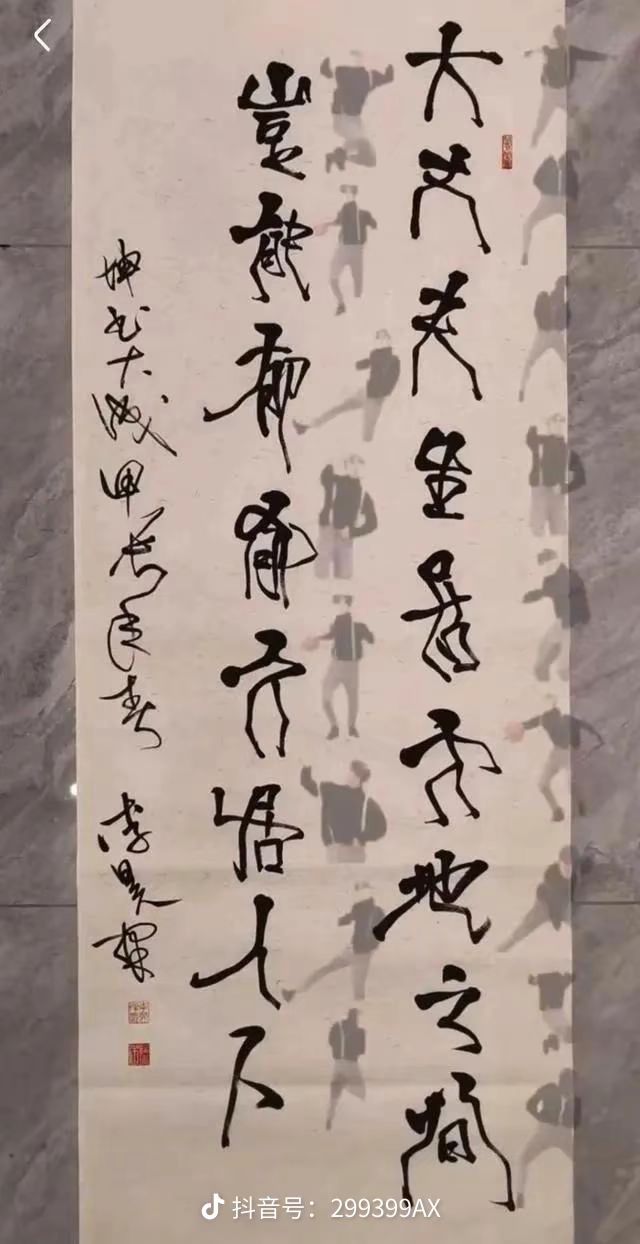 大丈夫生居天地之間
豈能郁郁久居人下
甲辰年春 李
抖音号：299399AX